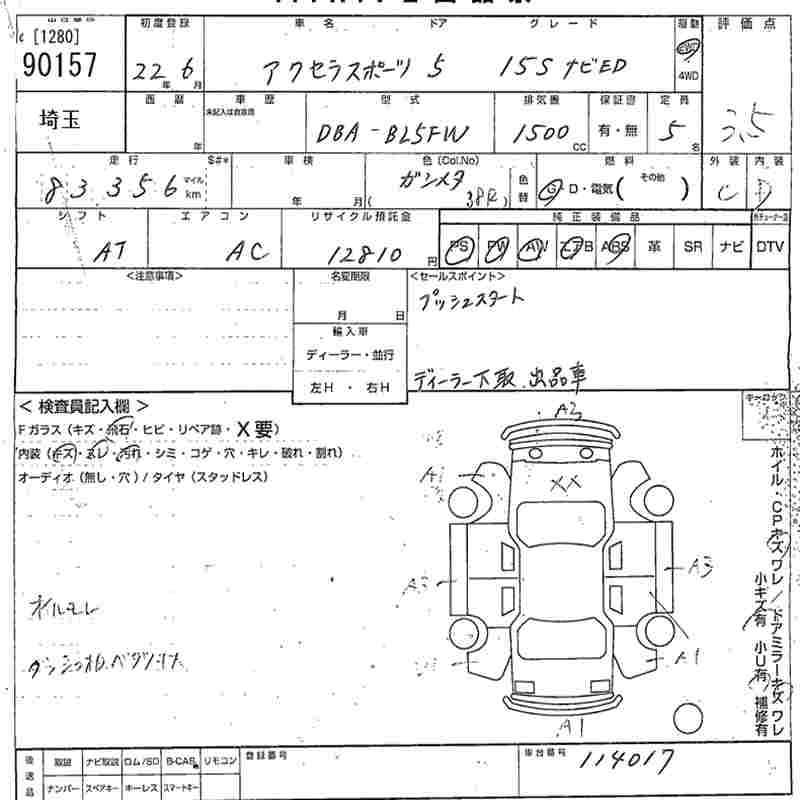 [1280]
90157
初度登録 車名 ドア グレード 駆動 評価点
22年 6月 アクセラスポーツ 5 15S ナビED 4WD
3.5
埼玉
西暦 車歴 型式 排気量 保証書 定員
未記入は自家用
年 DBA-BL5FW 1500CC 有・無 5名
走行 S#* 車検 色(Col.No) 燃料 その他 外装 内装
83,356 マイル km 年 月 ガンメタ (38P) 色替 G・D・電気( ) C D
シフト エアコン リサイクル預託金 純正装備品
AT AC 12810円 PS PW AW エアB ABS 革 SR ナビ DTV
<注意事項> 名変期限 <セールスポイント>
月 日 プッシュスタート
輸入車
ディーラー・並行
左H ・ 右H
ディーラー下取 出品車
< 検査員記入欄 >
Fガラス(キズ・飛石・ヒビ・リペア跡・X要)
内装(キズ・スレ・汚れ・シミ・コゲ・穴・キレ・破れ・割れ)
オーディオ(無し・穴)/タイヤ(スタッドレス)
A3
XX
A3
A3
A1
A1
オイルモレ
ダッシュボードベタツキ
ホイル・CPキズワレ/ドアミラーキズワレ
小キズ有 小U有 補修有
後送品 取説 ナビ取説 ロム/SD B-CAS リモコン 登録番号 車台番号
ナンバー スペアキー キーレス スマートキー 114017